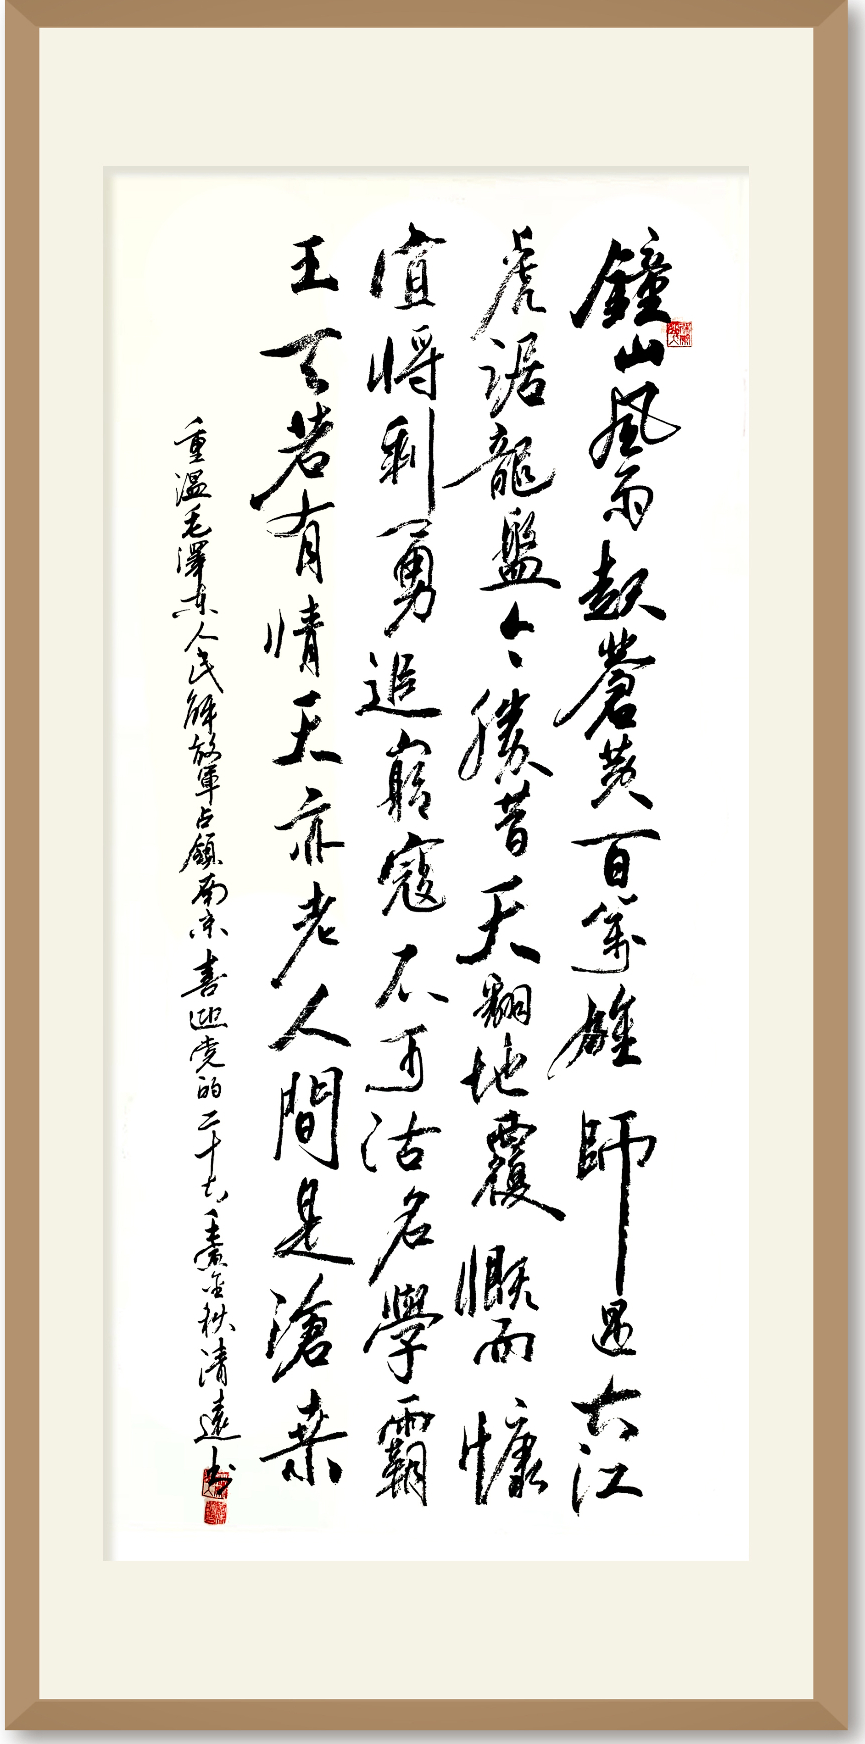 鐘山風雨起蒼黃百萬雄師過大江
虎踞龍盤今勝昔天翻地覆慨而慷
宜將剩勇追窮寇不可沽名學霸
王天若有情天亦老人間是滄桑
重溫毛澤东人民解放軍占領南京喜迎党的二十大壬寅金秋清遠书